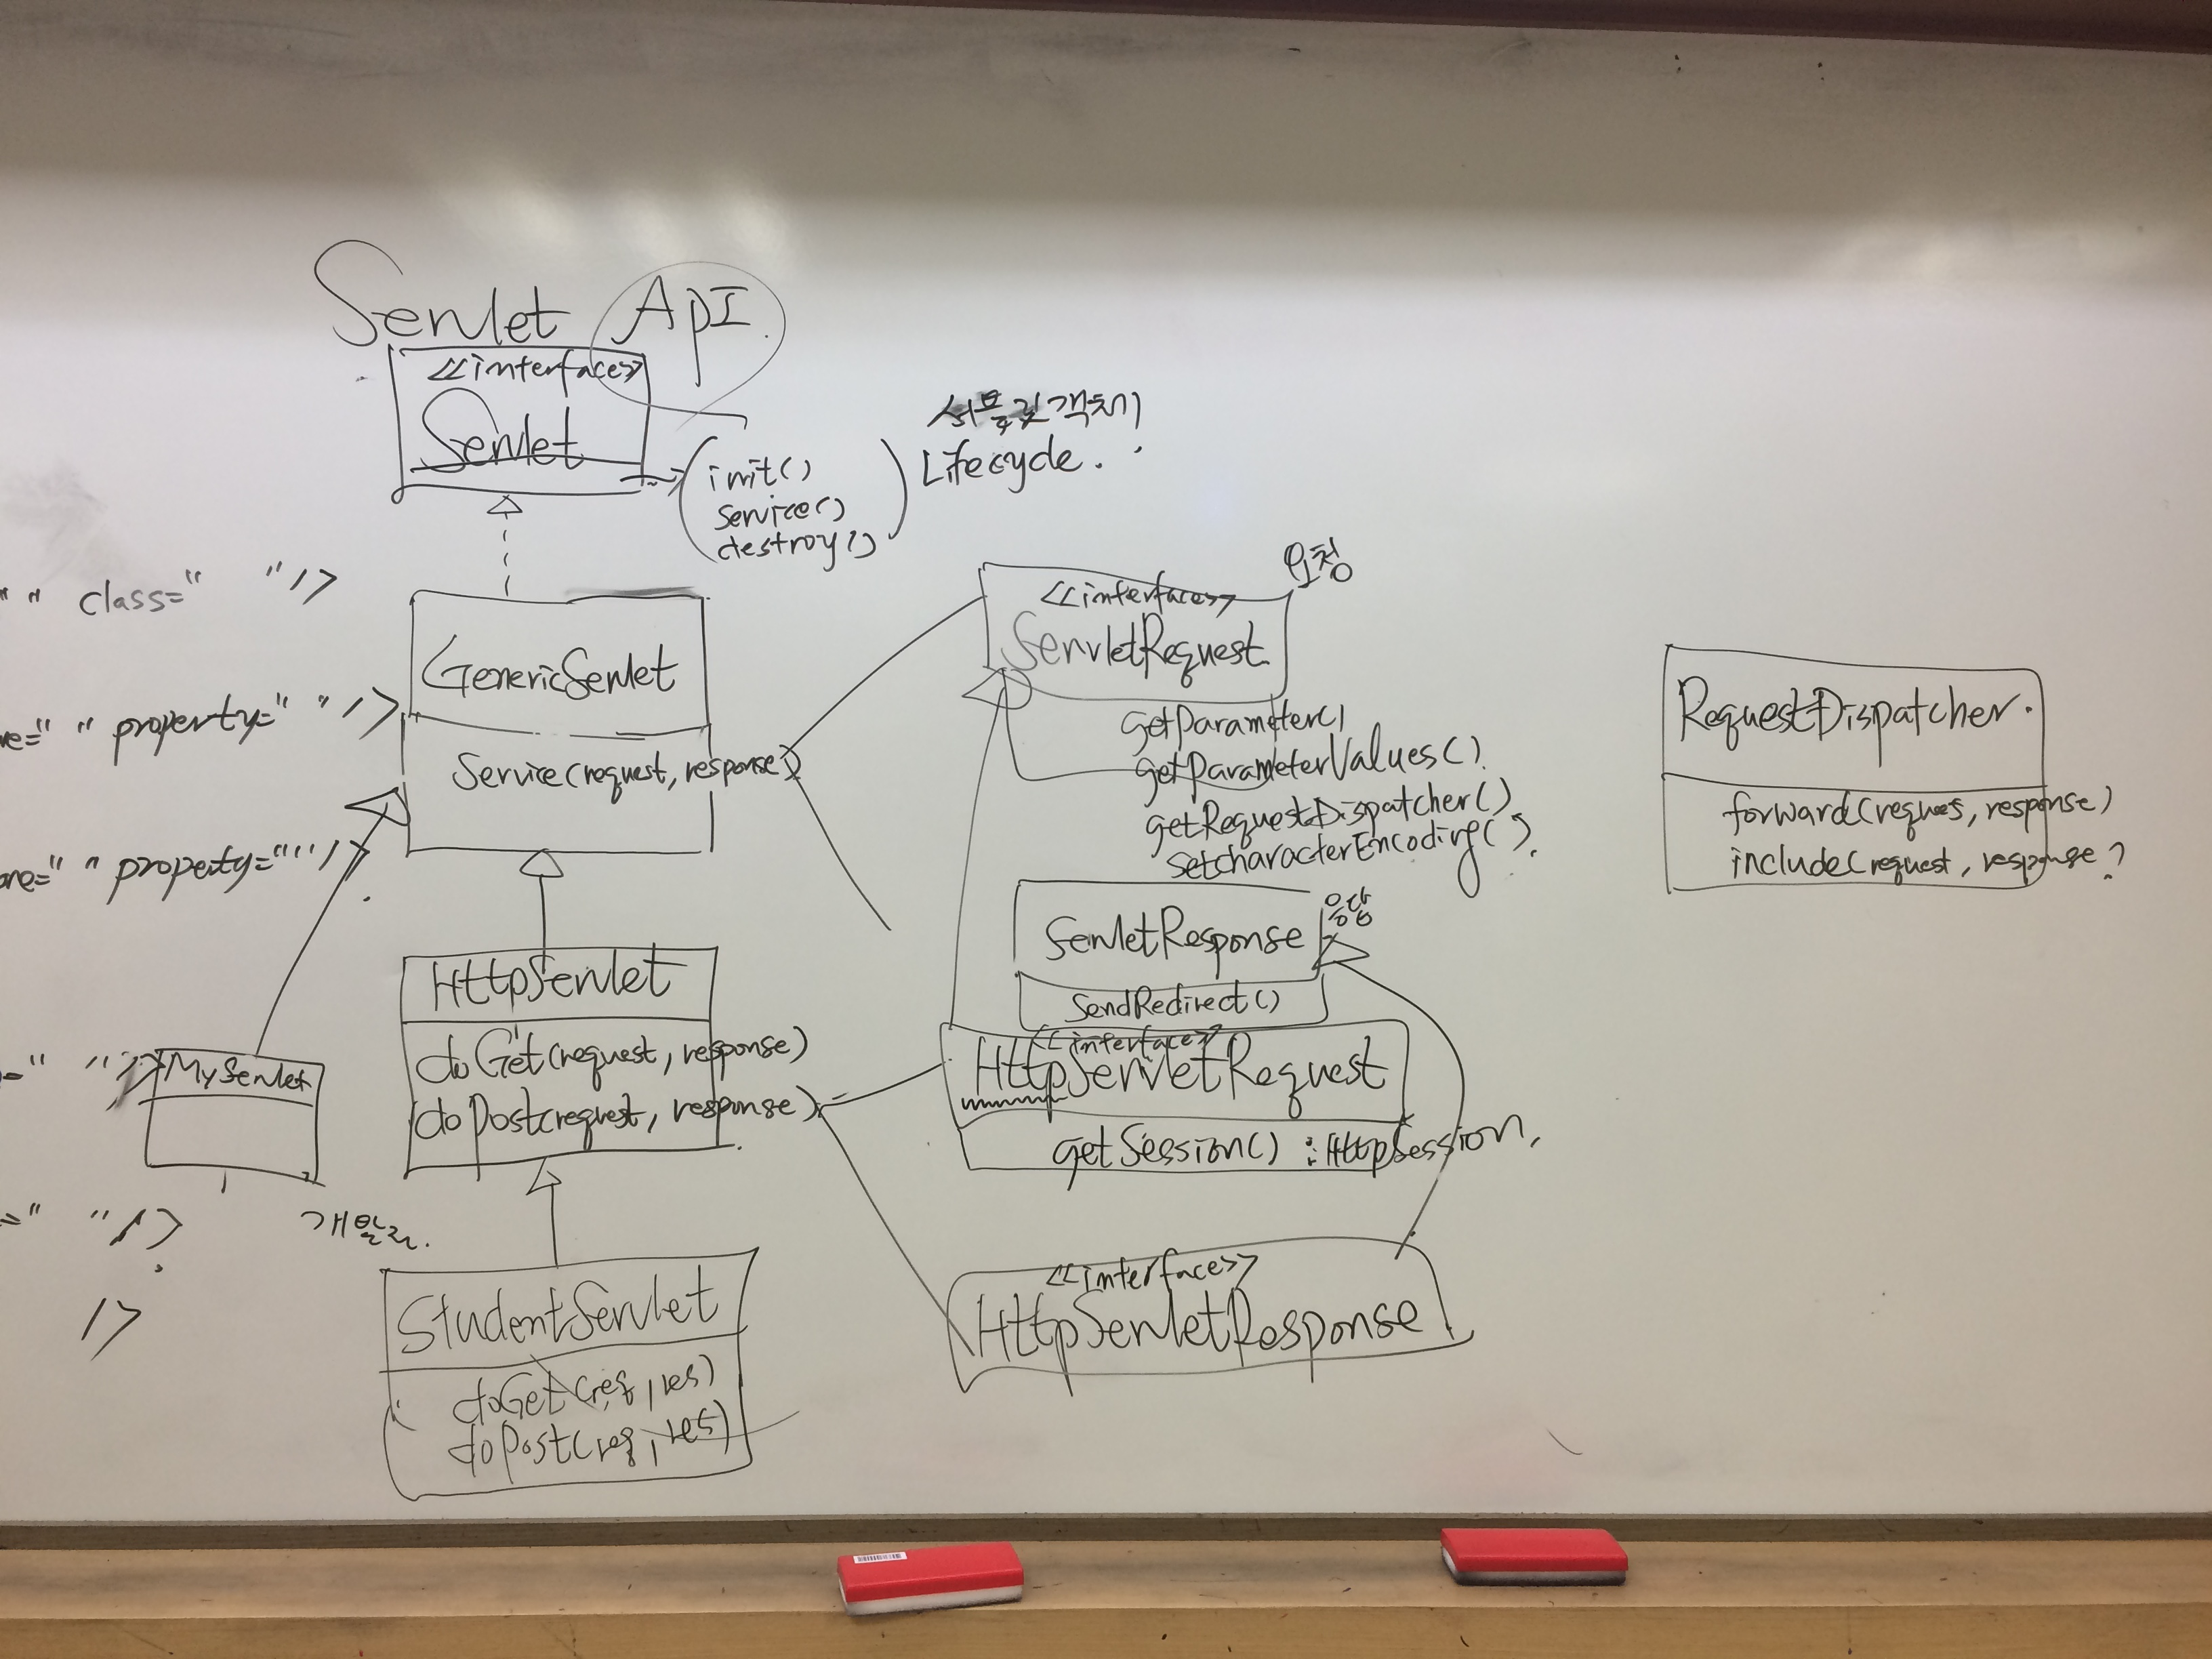 Servlet API
<<interface>>
Servlet
init()
service()
destroy()
서블릿 객체
Lifecycle.
" " class=" "/>
GenericServlet
Service(request, response)
" " property=" "/>
" " property=""/>
=" "/>
MyServlet
=" "/>
/>
HttpServlet
doGet(request, response)
doPost(request, response)
개발자.
StudentServlet
doGet(req, res)
doPost(req, res)
요청
<<interface>>
ServletRequest
getParameter()
getParameterValues()
getRequestDispatcher()
setcharacterEncoding()
응답
ServletResponse
SendRedirect()
<<interface>>
HttpServletRequest
getSession() : HttpSession
<<interface>>
HttpServletResponse
RequestDispatcher.
forward(reques, response)
include(request, response)